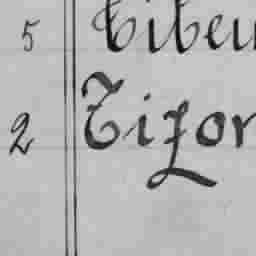 5 Tiben
2 Tizon